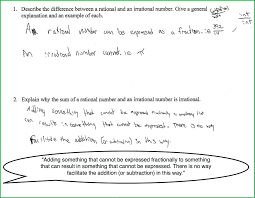 1. Describe the difference between a rational and an irrational number. Give a general
explanation and an example of each.
A rational number can be expressed as a fraction. ie
An irrational number cannot. ie π
2. Explain why the sum of a rational number and an irrational number is irrational.
Adding something that cannot be expressed
can result in something that cannot be expressed. There is no way
facilitate the addition (or subtraction) in this way.
"Adding something that cannot be expressed fractionally to something
that can result in something that cannot be expressed. There is no way
facilitate the addition (or subtraction) in this way."